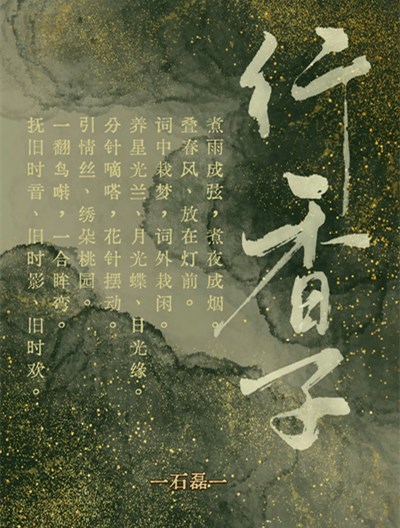 行香子
煮雨成弦,煮夜成烟。
叠春风、放在灯前。
词中栽梦,词外栽闲。
养星光兰、月光蝶、日光缘。
分针嘀嗒,花针摆动。
引情丝、绣朵桃园。
一翻鸟啭,一合眸弯。
抚旧时音、旧时影、旧时欢。
一石磊一